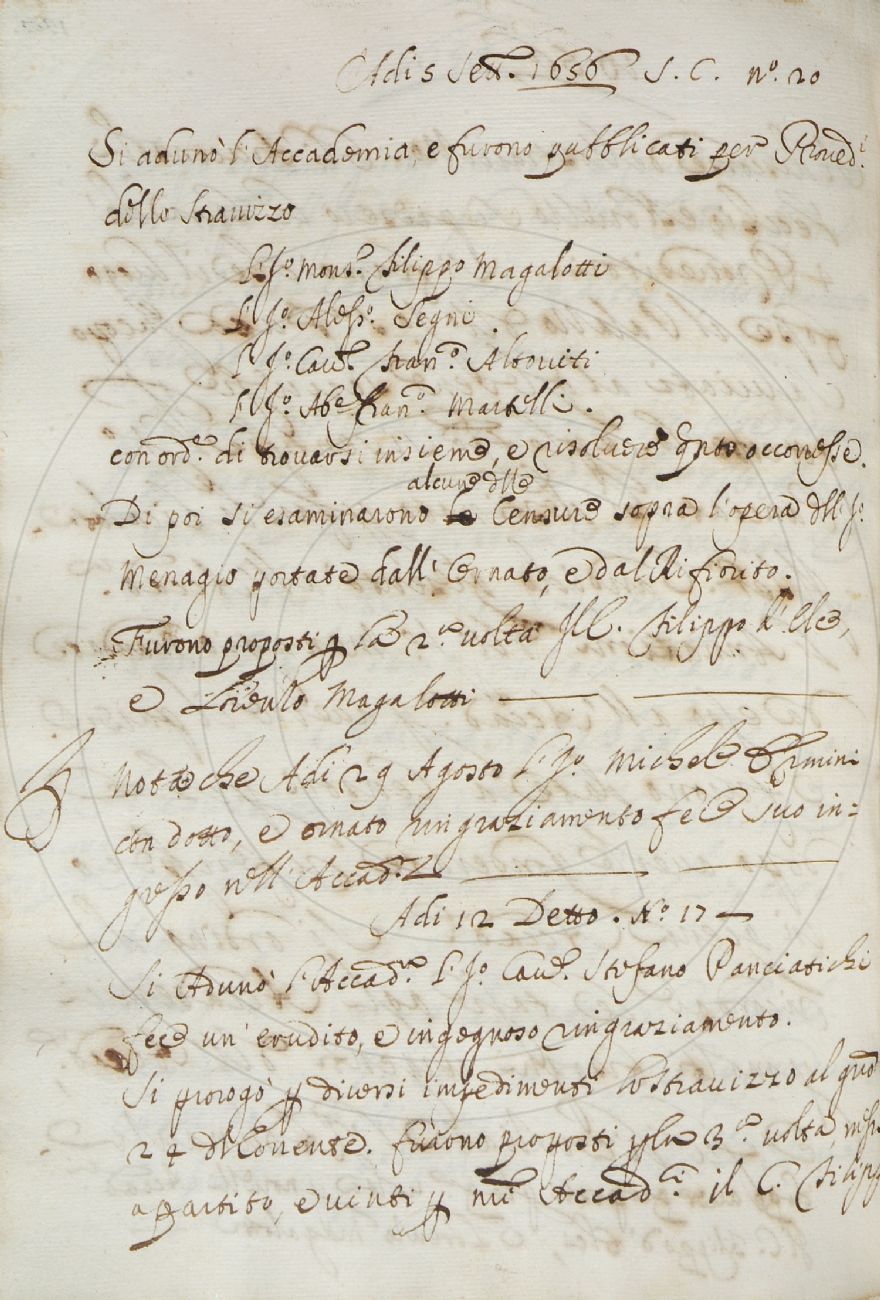 Adi 5 Sett.e 1656 S. C. nº. 20
Si adunò l'Accademia, e furono pubblicati per Proved.i
dello Stravizzo
l'Jº. Mons.r Filippo Magalotti
l'Jº. Aless.º Segni
l'Jº. Cav.e Fran.º Altoviti
l'Jº. Ab.e Fran.º Martelli.
con ord.e di trovarsi insieme, e risolvere qnto occorresse.
alcune dlle
Di poi si esaminarono le Censure sopra l'opera dll Jº.
Menagio portate dall' Ornato, e dal Rifiorito.
Furono proposti p la 2.a volta Filippo d'Elce,
e Lorenzo Magalotti
Nota che Adi 29 Agosto l'Jº. Michele Ermini
con dotto, e ornato ringraziamento fece suo in=
gresso nell'Accad.a
Adi 12 Detto. Nº 17
Si Adunò l'Accad.a l'Jº. Cav.e Stefano Panciatichi
fece un' erudito, e ingegnoso ringraziamento.
Si prorogò p diversi impedimenti lo stravizzo al
24 dl Corrente. furono proposti p la 3.a volta, messi
a partito, e vinti p Accad.ci il C. Filipp